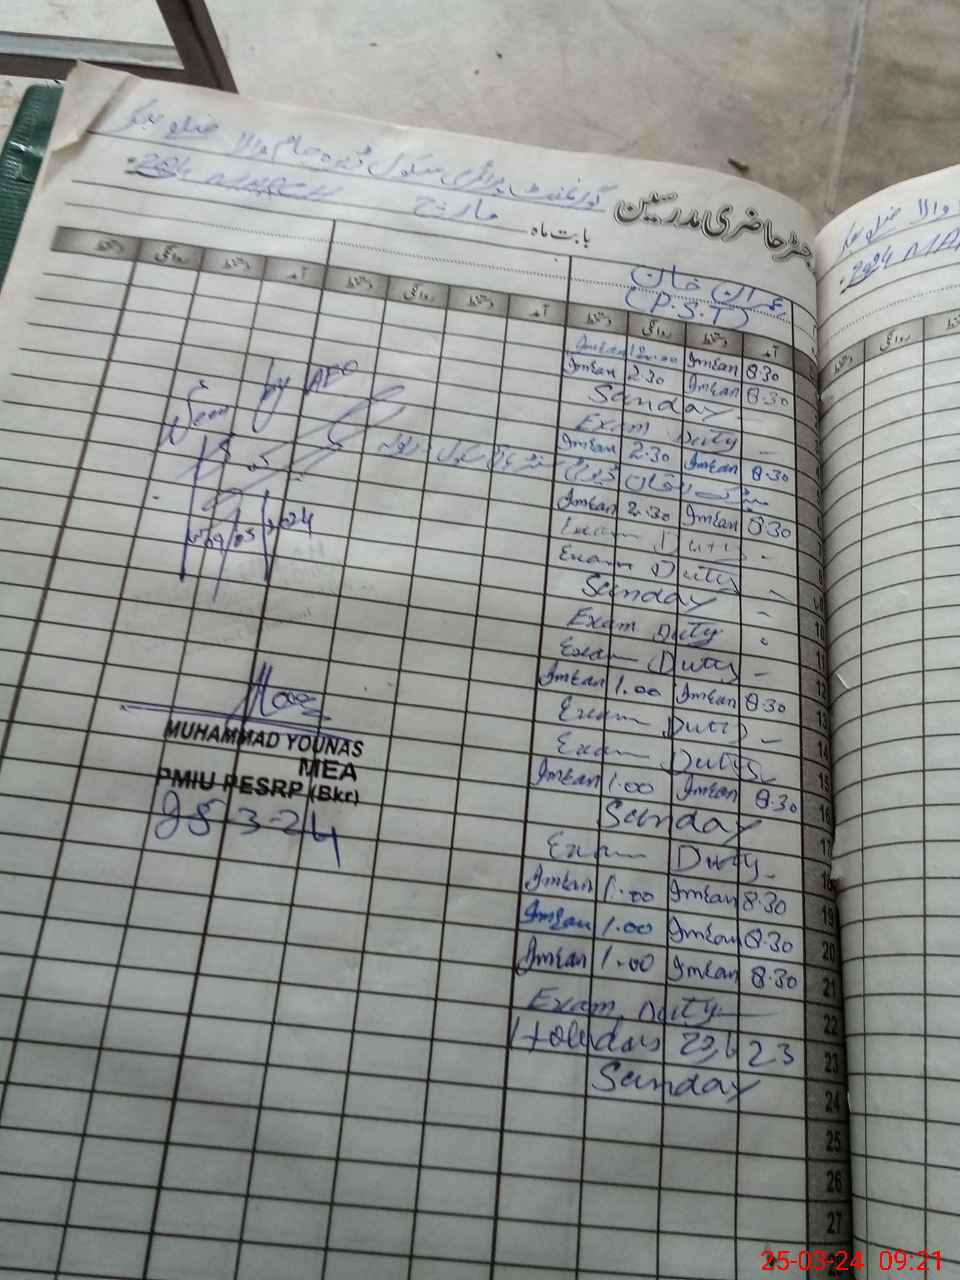 گورنمنٹ پرائمری سکول ڈیرہ غلام والا ضلع بھکر
رجسٹر حاضری مدرسین
بابت ماہ مارچ 2024 MARCH
عمران خان
(P.S.T)
آمد دستخط روانگی دستخط آمد دستخط روانگی دستخط آمد دستخط روانگی دستخط
8.30 Imran 12.00 Imran
8.30 Imran 2.30 Imran
Sunday
Exam Duty
8.30 Imran 2.30 Imran
8.30 Imran 2.30 Imran
Exam Duty
Exam Duty
Sunday
10 Exam Duty
11 Exam Duty
12 8.30 Imran 1.00 Imran
13 Exam Duty
14 Exam Duty
15 8.30 Imran 1.00 Imran
16 Sunday
17 Exam Duty
18 8.30 Imran 1.00 Imran
19 8.30 Imran 1.00 Imran
20 8.30 Imran 1.00 Imran
21 Exam Duty
22 Holidays 22, 23
23 Sunday
24
25
26
27
Seen by AEO
09/03/2024
MUHAMMAD YOUNAS
MEA
PMIU PESRP (Bkr)
25-3-24
والا ضلع بھکر
2024 MAR
روانگی دستخط
25-03-24 09:21